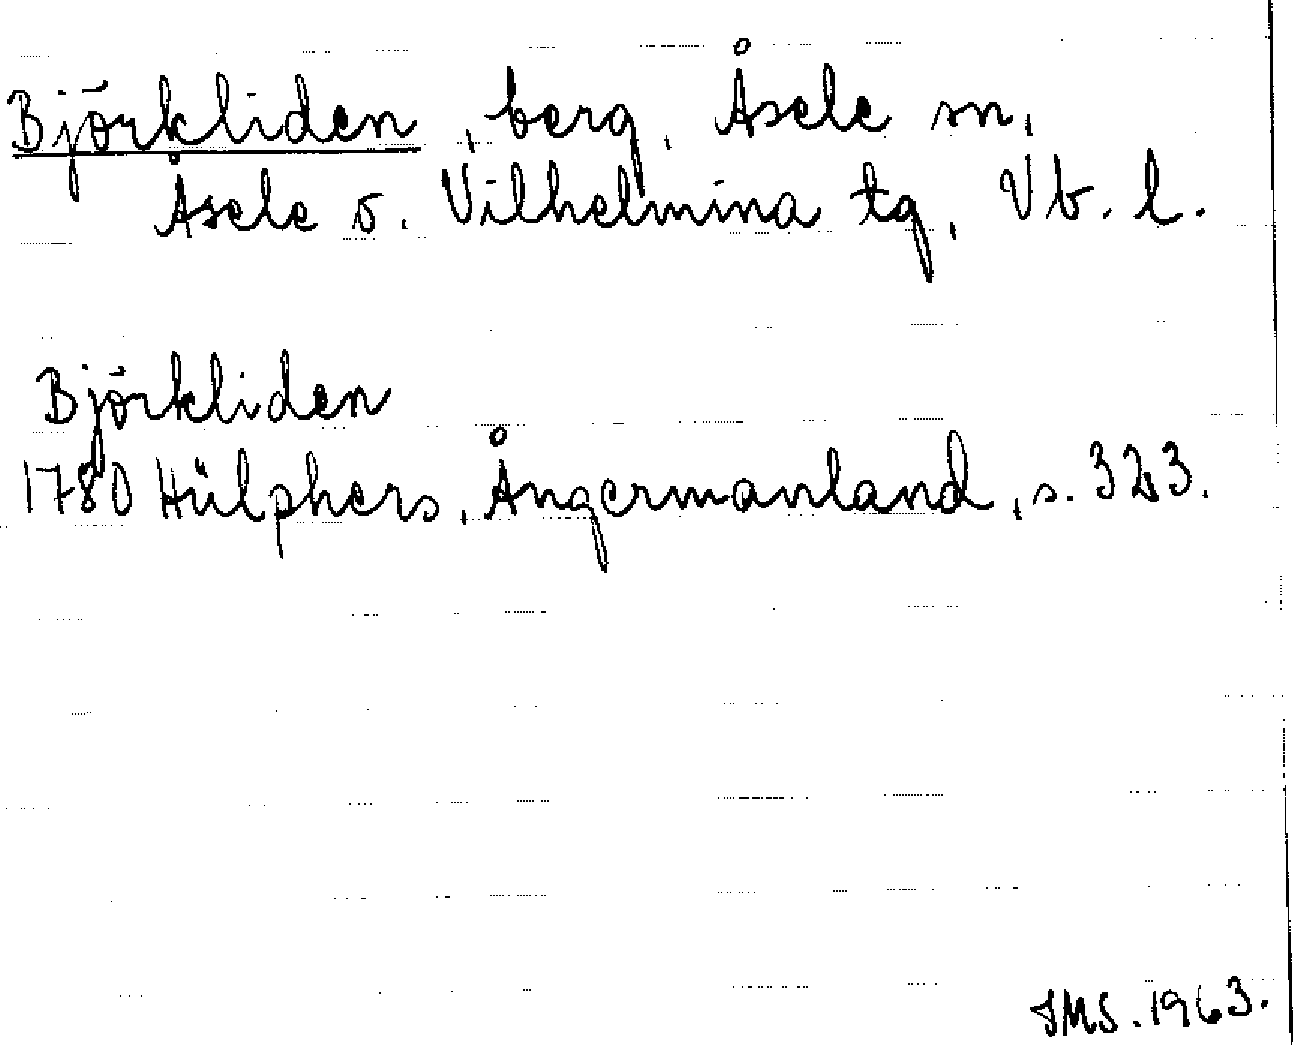 Björkliden, berg, Åsele sn,
Åsele o. Vilhelmina tg, Vb. l.
Björkliden
1780 Hülphers, Ångermanland, s. 323.
JMS. 1963.